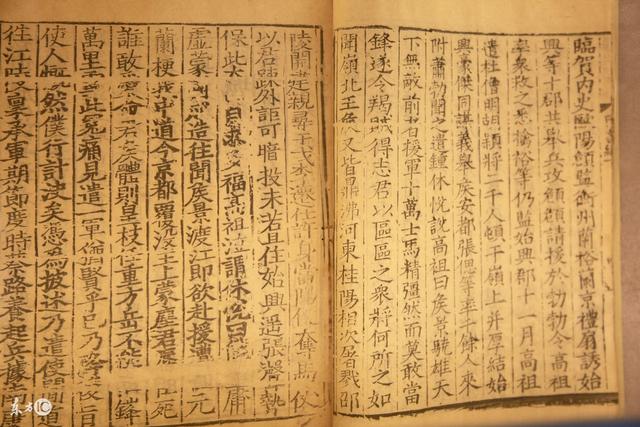 臨賀內史歐陽頠監衡州蘭裕蘭京禮扇誘始
興等十郡共舉兵攻頠頠請援於勃勃令高祖
率衆救之悉擒裕等仍監始興郡十一月高祖
遣杜僧明胡穎將二千人頓于嶺上并厚結始
興豪傑同謀義舉侯安都張偲等率千餘人來
附蕭勃聞之遣鍾休悅說高祖曰侯景驍雄天
下無敵前者援軍十萬士馬精彊然而莫敢當
鋒遂令羯賊得志君以區區之衆將何所之如
聞嶺北王侯又皆鼎沸河東桂陽相次屠戮邵
陵開建親尋干戈李遷仕許身當陽便奪馬仗
以君疎外詎可暗投未若且住始興遙張聲勢
保此太多福高祖泣謂休悅曰庸
虛蒙國成造往聞侯景渡江即欲赴援遭元
蘭梗我中道今京都覆沒主上蒙塵君死
誰敢愛命君侯體則皇枝任重方岳不能鋒
萬里雪此冤痛見遣一軍猶賢乎已乃旨
使人慨然僕行計決矣憑為披述乃遣使間道
往江陵稟承軍期節度時蔡路養起兵據南
东方IC